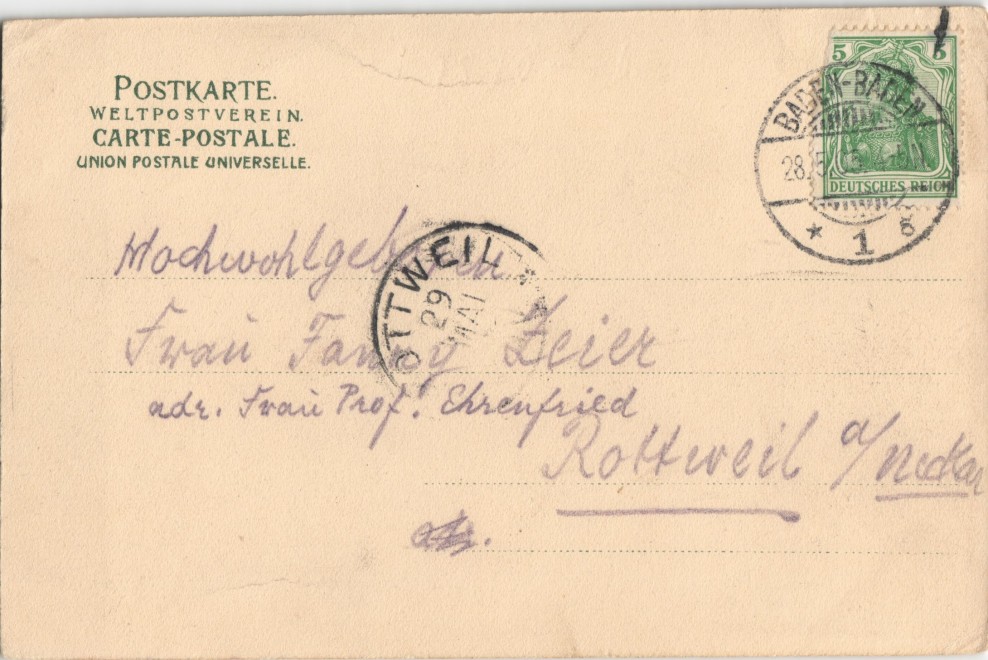 POSTKARTE.
WELTPOSTVEREIN.
CARTE-POSTALE.
UNION POSTALE UNIVERSELLE.
5 5
DEUTSCHES REICH
BADEN-BADEN
28.5
* 1 6
Frau Fanny Zeier
adr. Frau Prof. Ehrenfried
Rottweil a/Neckar
OTTWEIL
29
MAI